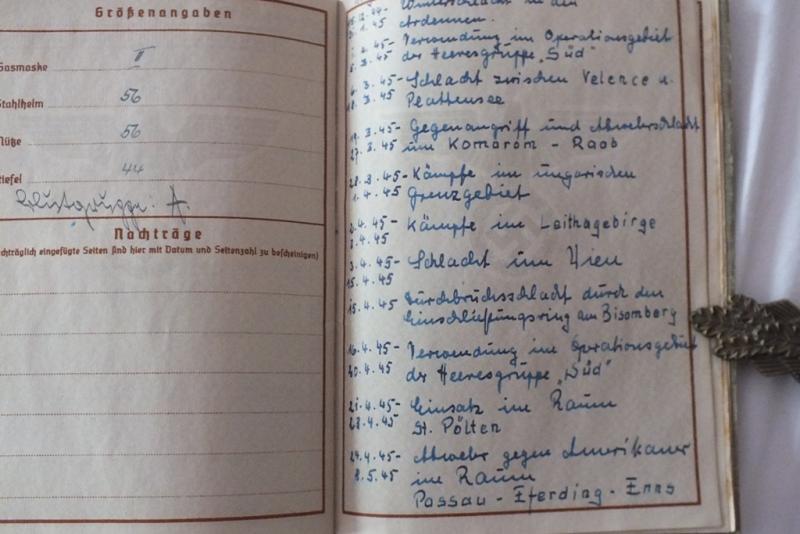 Größenangaben
Gasmaske II
Stahlhelm 56
Mütze 56
tiefel 44
Blutgruppe: A.
Nachträge
chträglich eingefügte Seiten sind hier mit Datum und Seitenzahl zu bescheinigen)
12.44- Winterschlacht in den
45 Ardennen.
45- Verwendung im Operationsgebiet
3.45 der Heeresgruppe „Süd"
6.3.45- Schlacht zwischen Velence u.
18.3.45 Plattensee
19.3.45- Gegenangriff und Abwehrschlacht
27.3.45 um Komarom - Raab
28.3.45- Kämpfe im ungarischen
1.4.45 Grenzgebiet
4.45- Kämpfe im Leithagebirge
2.4.45
3.4.45- Schlacht um Wien
15.4.45
15.4.45 Durchbruchsschlacht durch den
Einschließungsring am Bisamberg
16.4.45- Verwendung im Operationsgebiet
20.4.45 der Heeresgruppe „Süd"
21.4.45- Einsatz im Raum
23.4.45 St. Pölten
24.4.45- Abwehr gegen Amerikaner
8.5.45 im Raum
Passau - Eferding - Enns